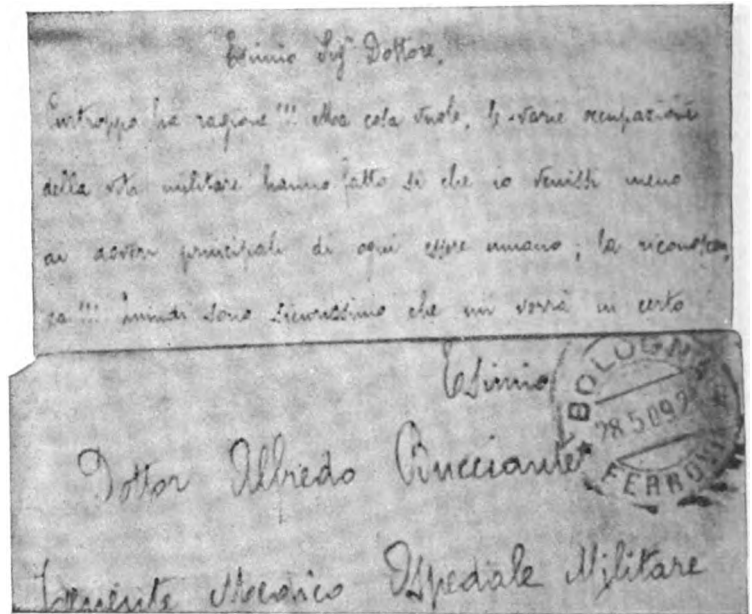 Esimio Sigr Dottore,
Purtroppo ha ragione!!! Ma cosa vuole, le varie ocupazioni
della vita militare hanno fatto sì che io venissi meno
ai doveri principali di ogni essere umano; la riconoscen,
za!!! Quindi sono sicurissimo che mi vorrà in certo
Esimio
Dottor Alfredo
Tenente Medico Ospedale Militare
BOLOGNA
28.5.09.2
FERROVIA